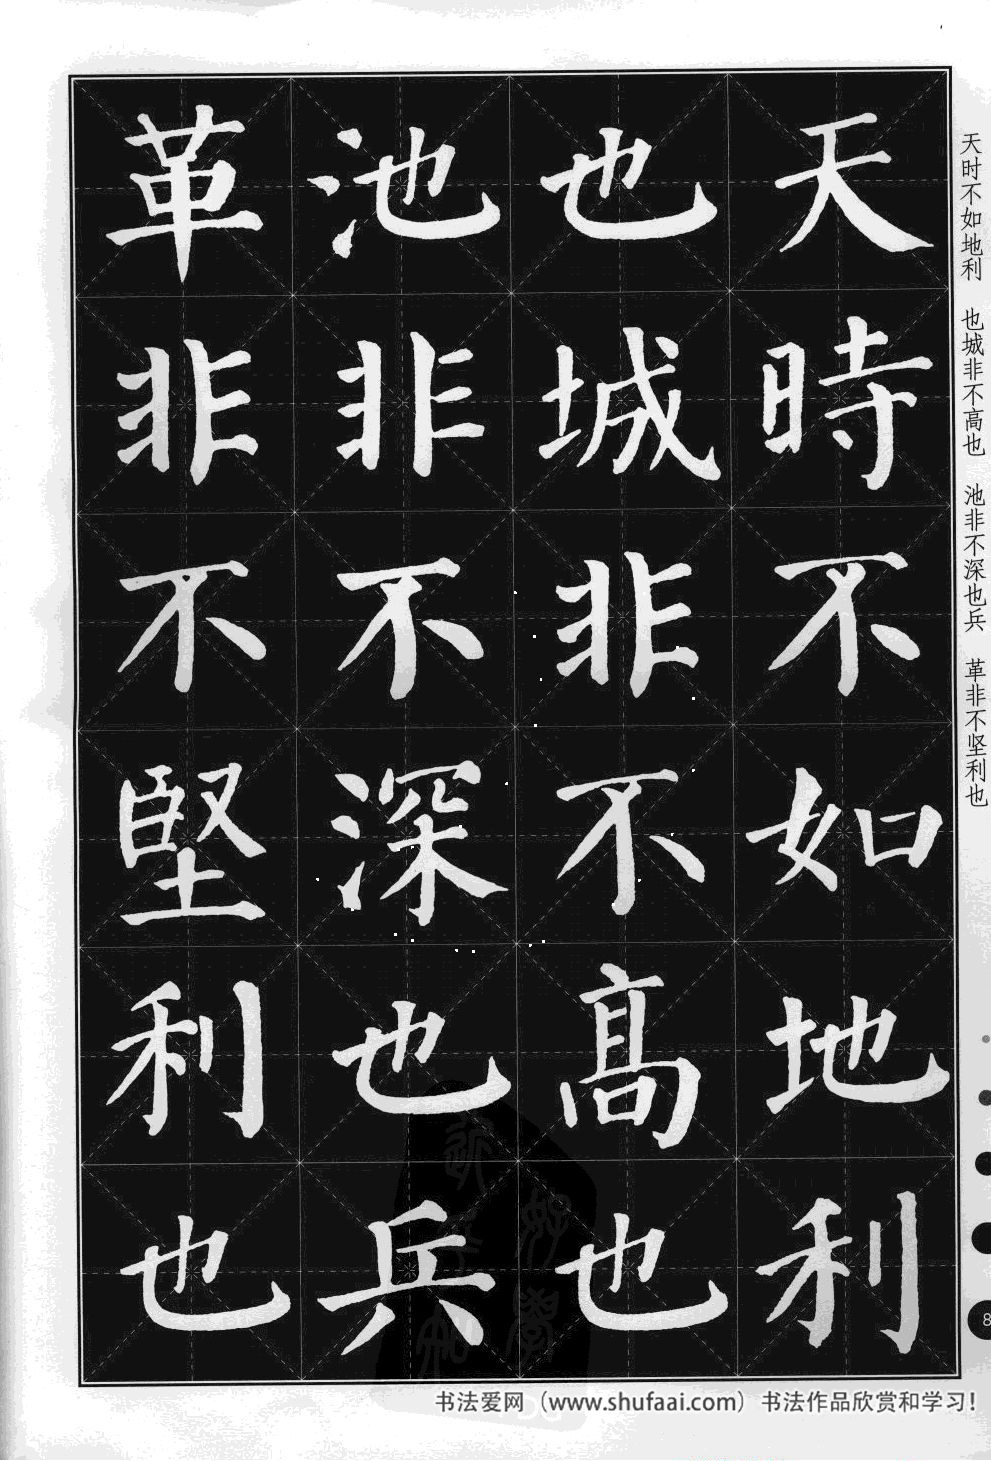 天時不如地利
也城非不高也
池非不深也兵
革非不堅利也
天时不如地利 也城非不高也 池非不深也兵 革非不坚利也
8
书法爱网（www.shufaai.com）书法作品欣赏和学习！